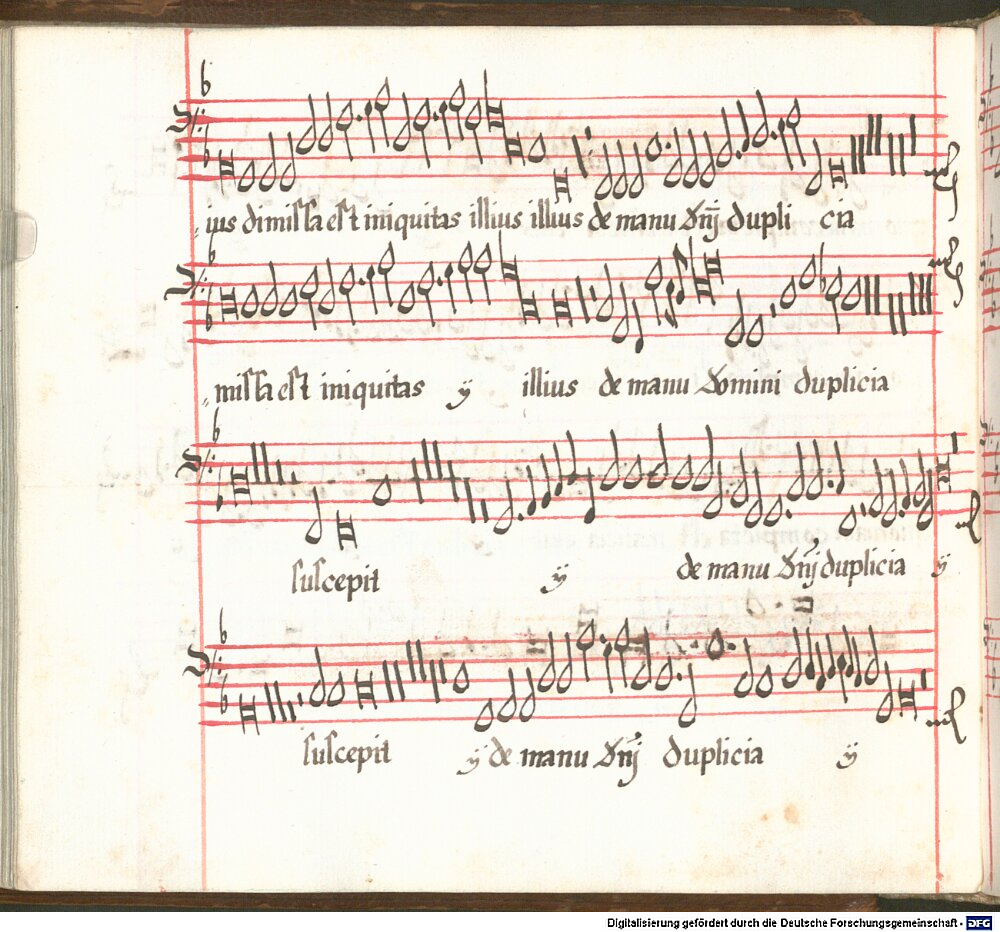 ius dimissa est iniquitas illius illius de manu dnj dupli cia
missa est iniquitas ÿ illius de manu Domini duplicia
suscepit ÿ de manu dnj duplicia ÿ
suscepit ÿ de manu dnj duplicia ÿ
Digitalisierung gefördert durch die Deutsche Forschungsgemeinschaft - DFG